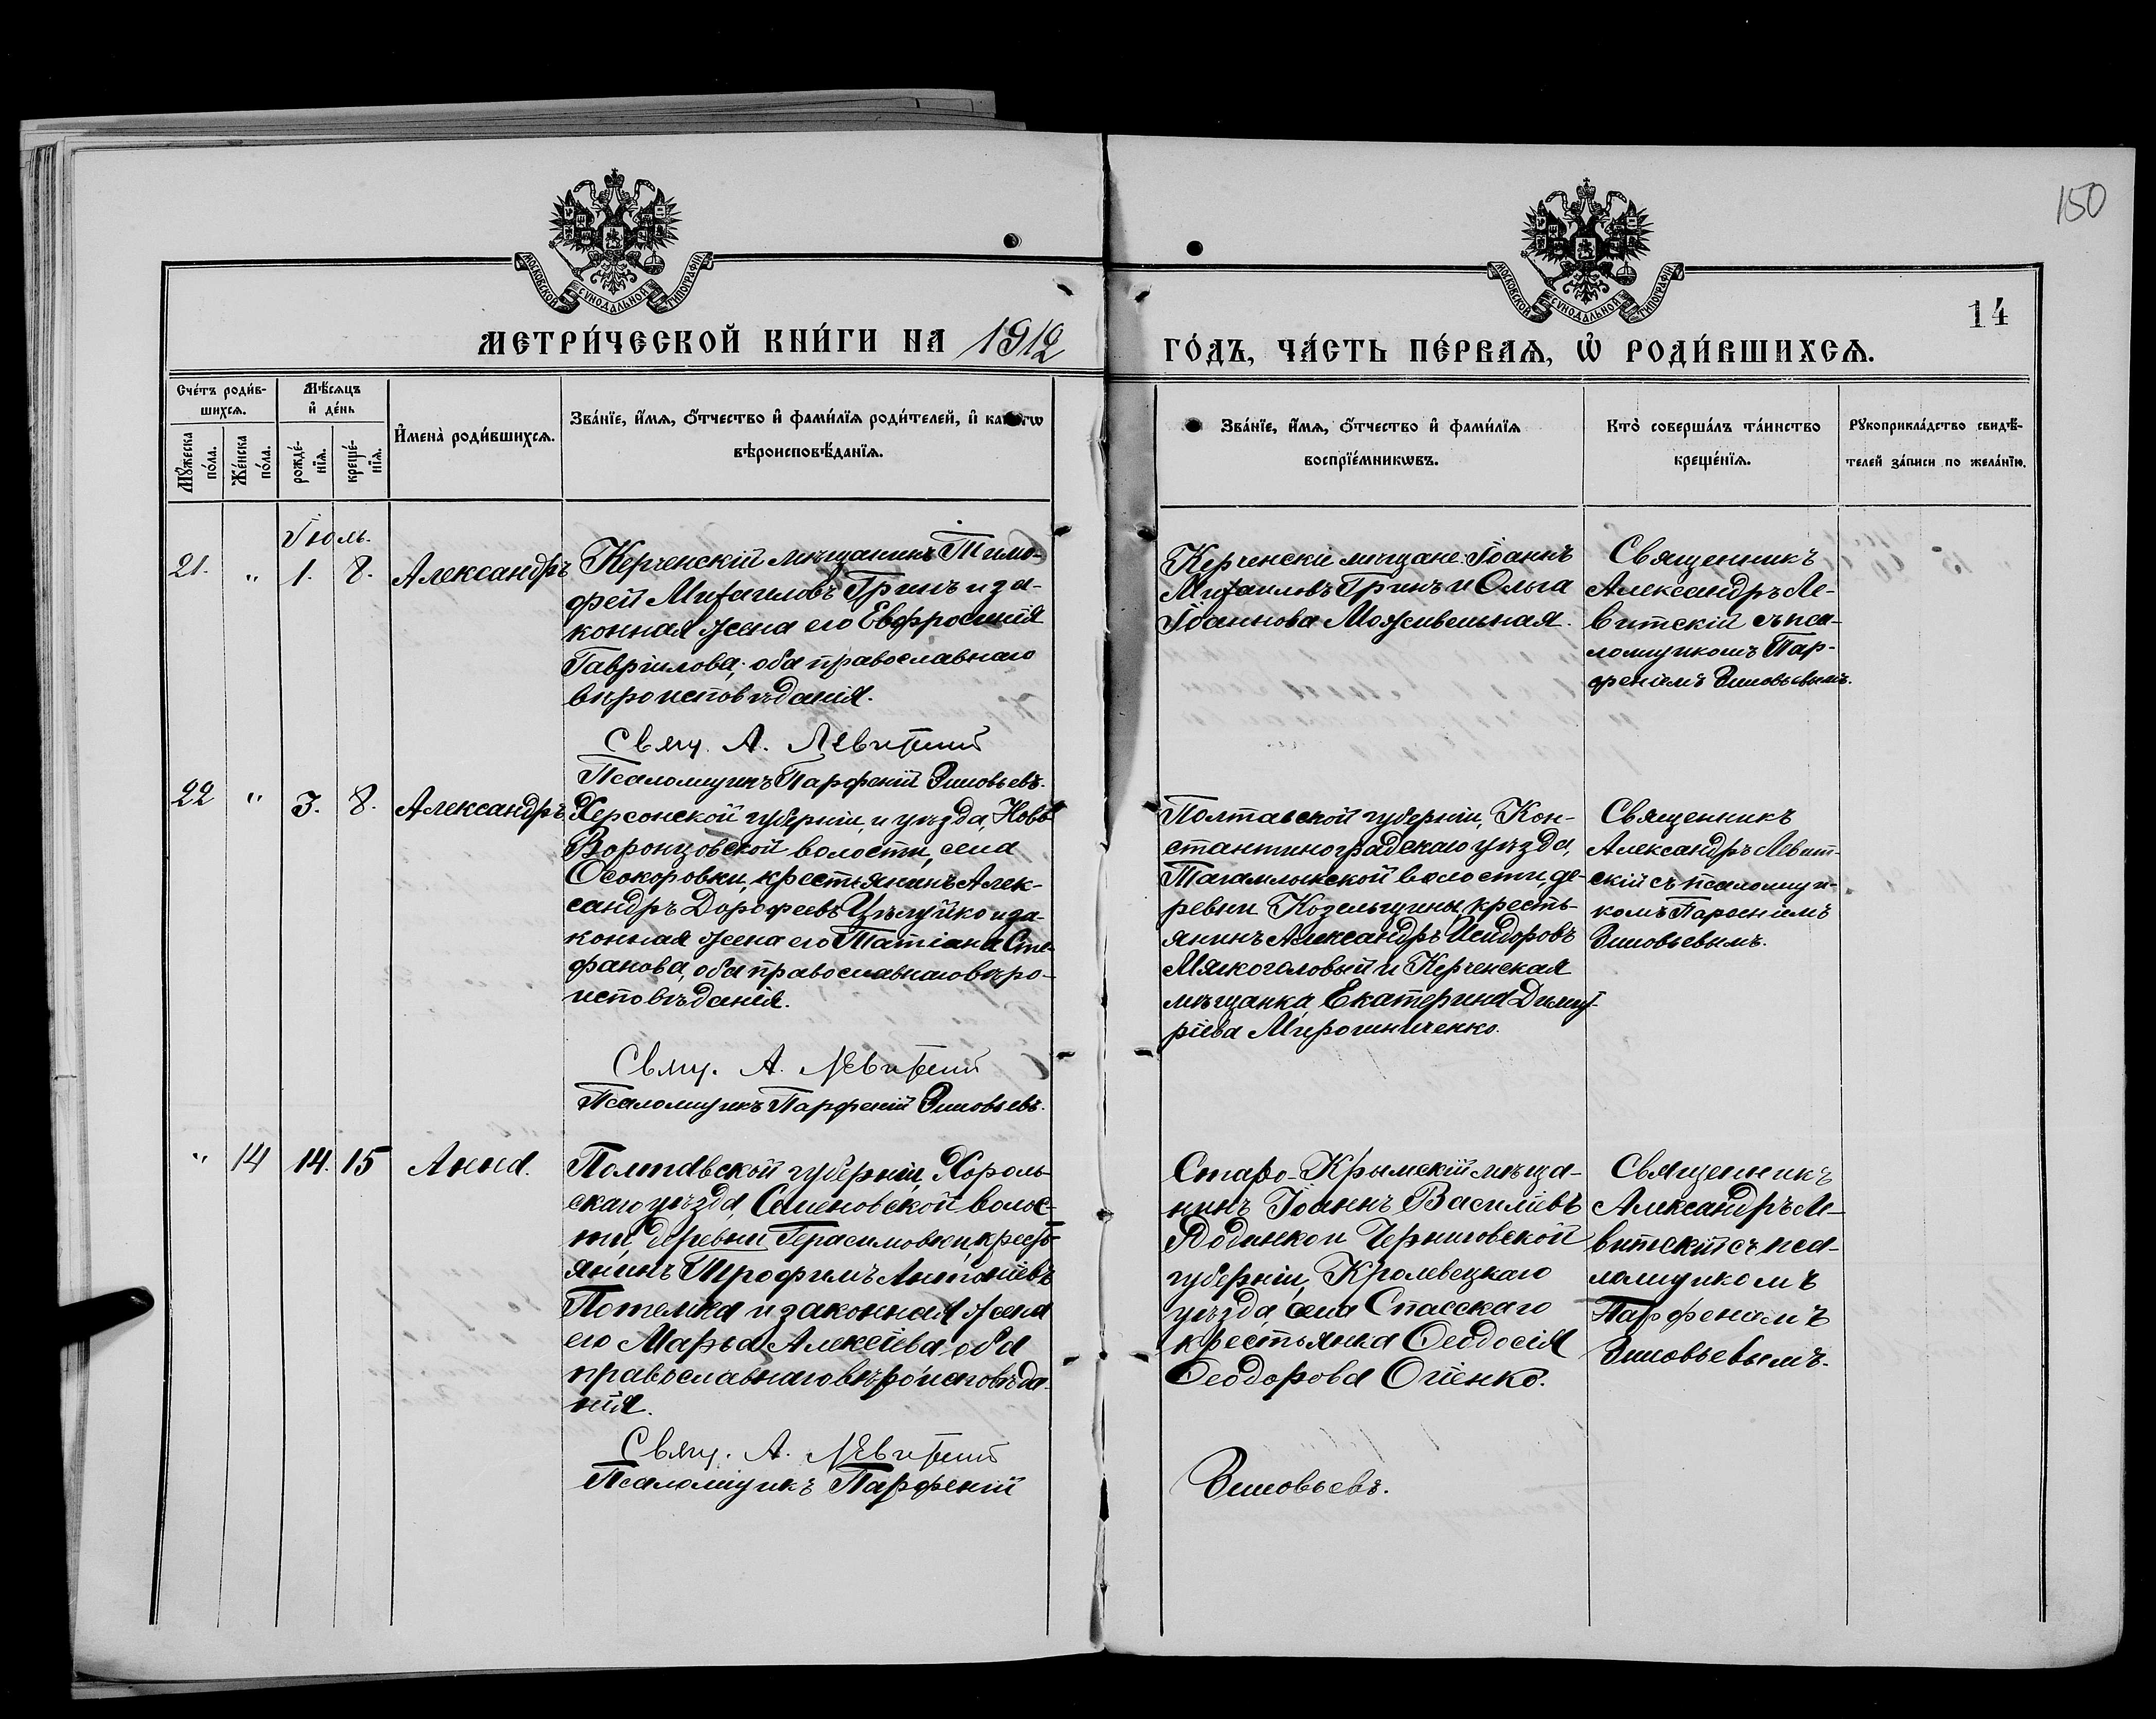 150
МОСКОВСКОЙ СѴНОДАЛЬНОЙ ТИПОГРАФІИ
МОСКОВСКОЙ СѴНОДАЛЬНОЙ ТИПОГРАФІИ
14
МЕТРИ́ЧЕСКОЙ КНИ́ГИ НА 1912
ГО́ДЪ, ЧА́СТЬ ПЕ́РВАѦ, Ѡ҆ РОДИ́ВШИХСѦ.
Сче́тъ роди́в-
шихсѧ.
Мѣ́сѧцъ
и҆ де́нь
Мꙋ́жеска
по́ла.
Же́нска
по́ла.
рожде́-
нїѧ.
креще́-
нїѧ.
И҆мена̀ роди́вшихсѧ.
Зва́нїе, и҆́мѧ, ѻ҆́тчество и҆ фами́лїѧ роди́телей, и҆
вѣроисповѣ́данїѧ.
Зва́нїе, и҆́мѧ, ѻ҆́тчество и҆ фами́лїѧ
воспрїе́мникѡвъ.
Кто̀ соверша́лъ та́инство
креще́нїѧ.
Рꙋкоприкла́дство свидѣ́-
телей за́писи по жела́нїю.
Іюль.
21. " 1. 8. Александръ
Керченскій мѣщанинъ Тимо-
фей Михаиловъ Гринъ и за-
конная жена его Евфросинія
Гавріилова, оба православнаго
вѣроисповѣданія.
Свящ. А. Левитскій
Псаломщикъ Парфеній Зиновьевъ.
Керченскіе мѣщане Іоаннъ
Михаиловъ Гринъ и Ольга
Іоаннова Можевельная.
Священникъ
Александръ Ле-
витскій съ пса-
ломщикомъ Пар-
феніемъ Зиновьевымъ.
22 " 3. 8. Александръ
Херсонской губерніи, и уѣзда, Ново-
Воронцовской волости, села
Осокоровки, крестьянинъ Алек-
сандръ Дорофеевъ Цѣлуйко и за-
конная жена его Татіана Сте-
фанова, оба православнаго вѣро-
исповѣданія.
Свящ. А. Левитскій
Псаломщикъ Парфеній Зиновьевъ.
Полтавской губерніи, Кон-
стантиноградскаго уѣзда,
Тагамлыкской волости, де-
ревни Козельщины, кресть-
янинъ Александръ Исидоровъ
Мякоголовый и Керченская
мѣщанка, Екатерина Димит-
ріева Мирошниченко.
Священникъ
Александръ Левит-
скій съ псаломщи-
комъ Парфеніемъ
Зиновьевымъ.
" 14 14. 15 Анна.
Полтавской губерніи, Хороль-
скаго уѣзда, Семеновской волос-
ти, деревни Герасимовки, кресть-
янинъ Трофимъ Антоніевъ
Потемка и законная жена
его Марѳа Алексіева, оба
православнаго вѣроисповѣда-
нія.
Свящ. А. Левитскій
Псаломщикъ Парфеній
Старо-Крымскій мѣща-
нинъ Іоаннъ Василіевъ
и Черниговской
губерніи, Кролевецкаго
уѣзда, села Спасскаго
крестьянка Ѳеодосія
Ѳеодорова Огіенко.
Зиновьевъ.
Священникъ
Александръ Ле-
витскій съ пса-
ломщикомъ
Парфеніемъ
Зиновьевымъ.